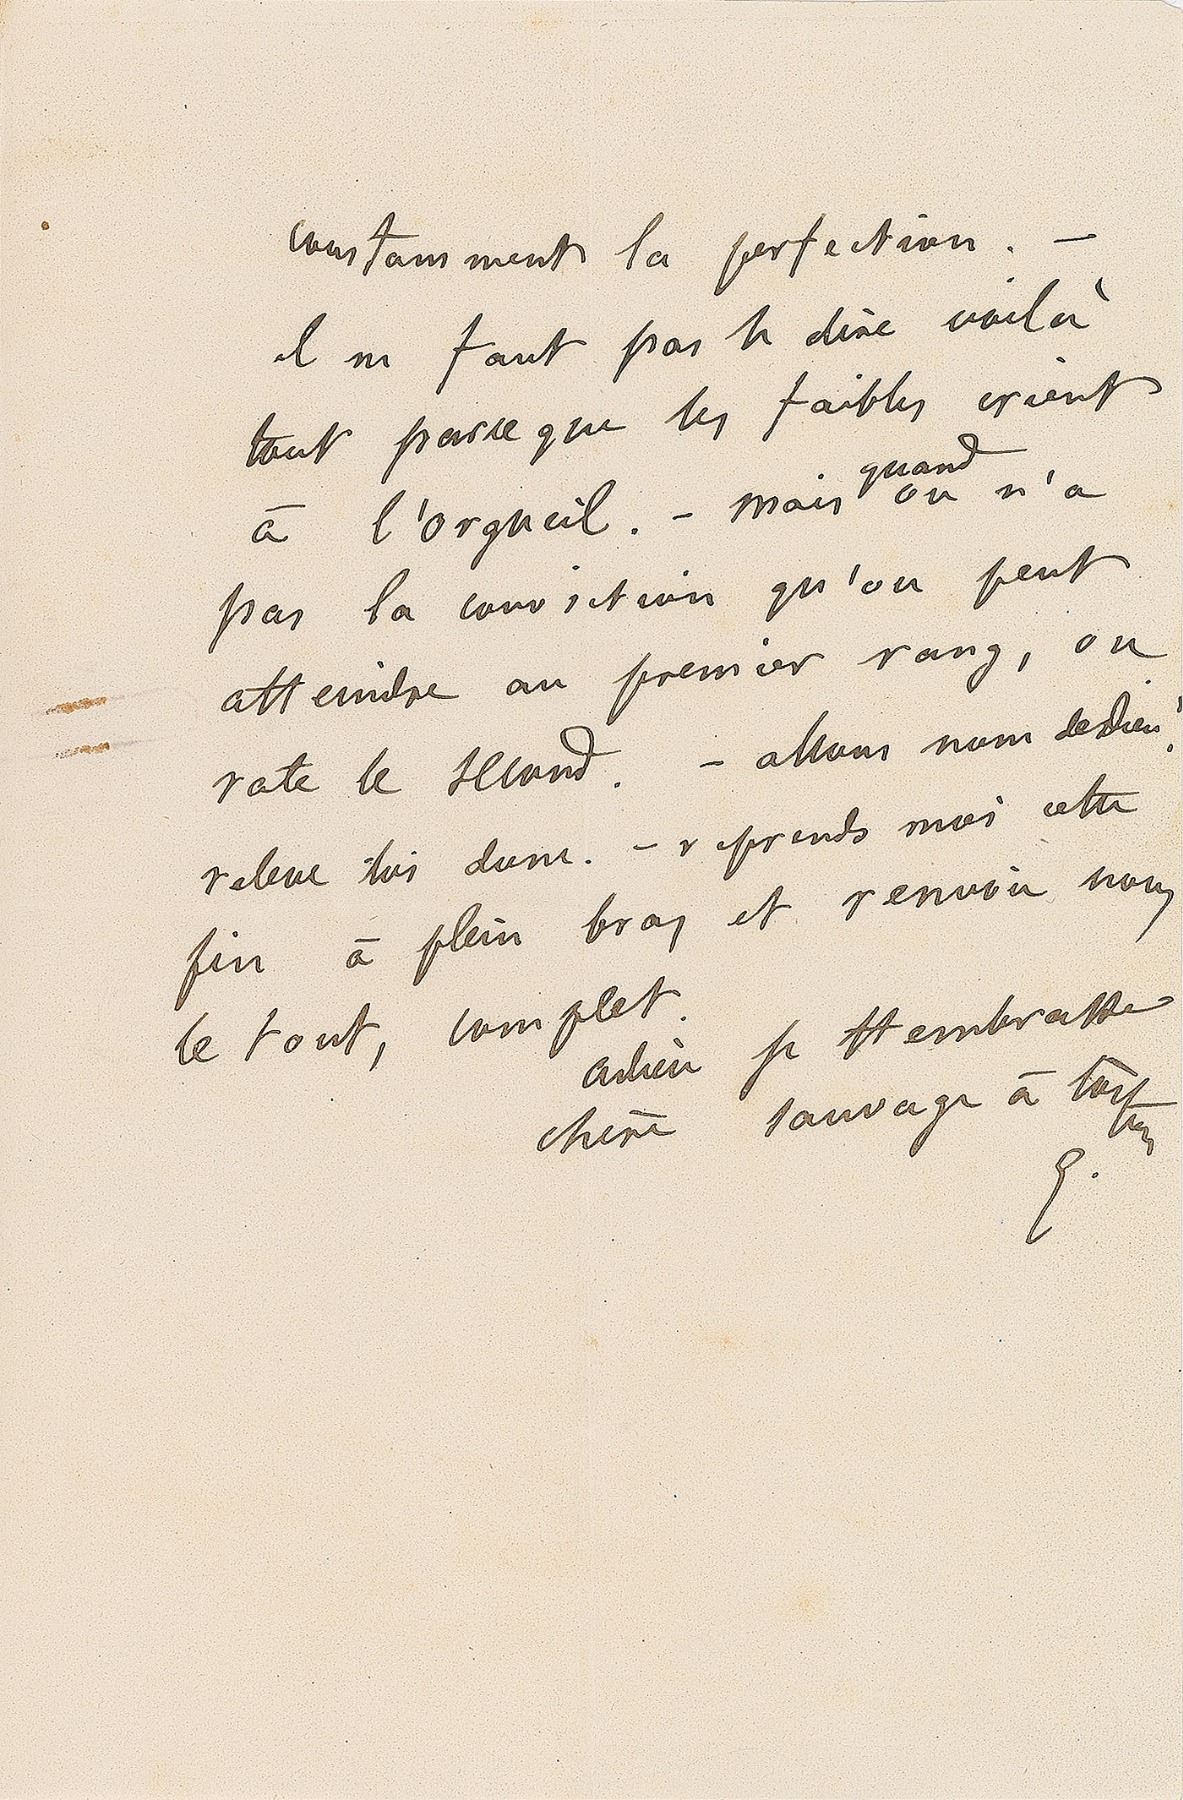 constamment la perfection. —
il ne faut pas le dire voilà
tout parce que les faibles crient
à l'orgueil. — Mais quand on n'a
pas la conviction qu'on peut
atteindre au premier rang, on
rate le second. — allons nom de dieu!
releve toi donc. — reprends moi cette
fin à plein bras et renvoie nous
le tout, complet.
adieu je t'embrasse
chère sauvage à toi
G.